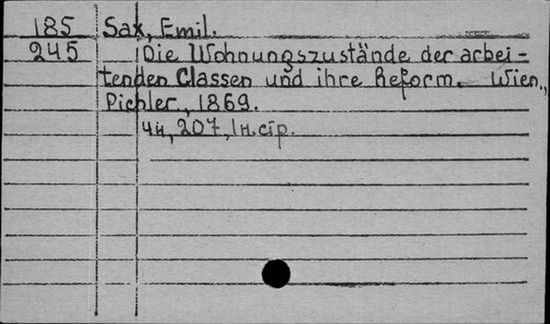 185 Sax, Emil.
245 Die Wohnungszustände der arbei-
tenden Classen und ihre Reform. Wien.,
Pichler., 1869.
4н, 207, 1н.стр.